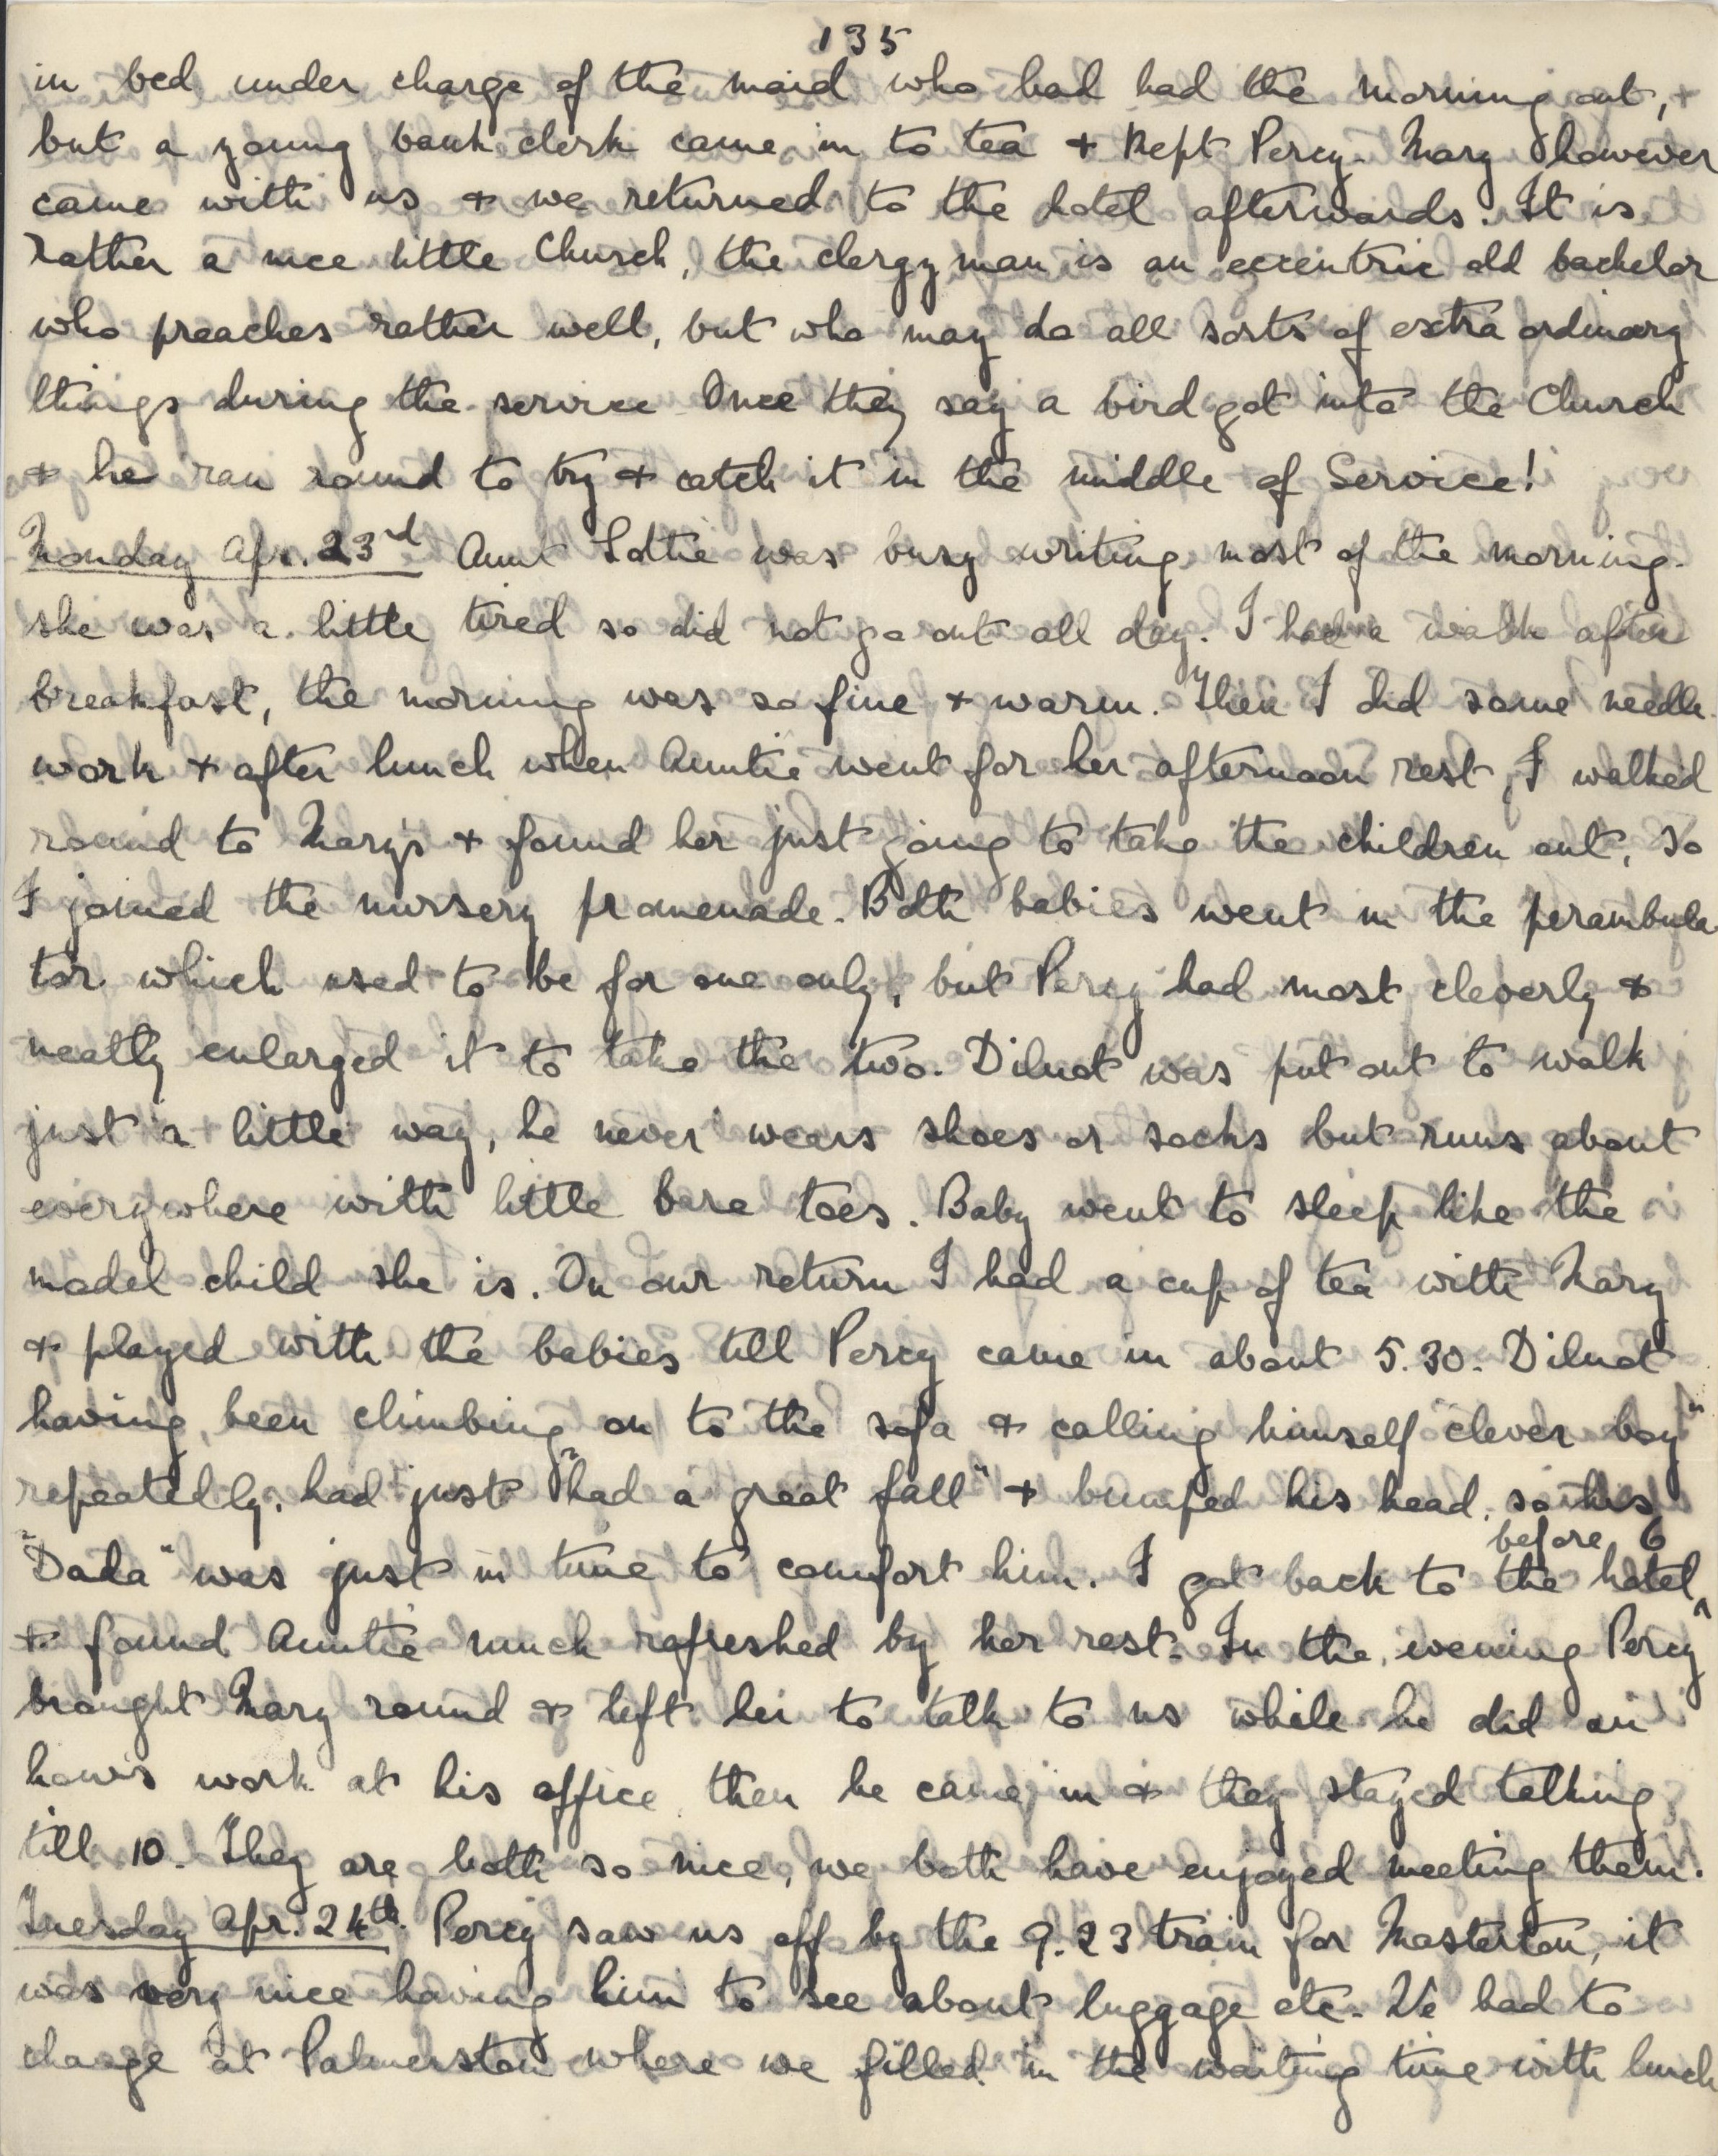 135
in bed under charge of the maid who had had the morning out, +
but a young bank clerk came in to tea + kept Percy. Mary however
came with us + we returned to the hotel afterwards. It is
rather a nice little Church, the clergyman is an eccentric old bachelor
who preaches rather well, but who may do all sorts of extra ordinary
things during the service Once they say a bird got into the Church
+ he ran round to try + catch it in the middle of Service!
Monday Apr. 23rd Aunt Lottie was busy writing most of the morning.
she was a little tired so did not go out all day. I had a walk after
breakfast, the morning was so fine + warm. Then I did some needle
work + after lunch when Auntie went for her afternoon rest, I walked
round to Mary's + found her just going to take the children out, so
I joined the nursery promenade. Both babies went in the perambula
tor which used to be for one only, but Percy had most cleverly +
neatly enlarged it to take the two. Dilnot was put out to walk
just a little way, he never wears shoes or socks but runs about
everywhere with little bare toes. Baby went to sleep like the
model child she is. On our return I had a cup of tea with Mary
+ played with the babies till Percy came in about 5.30. Dilnot
having been climbing on to the sofa + calling himself "clever boy"
repeatedly, had just "had a great fall" + bumped his head, so his
before 6
"Dada" was just in time to comfort him. I got back to the hotel ^
+ found Auntie much refreshed by her rest. In the evening Percy
brought Mary round + left her to talk to us while he did an
hour's work at his office then he came in + they stayed talking
till 10. They are both so nice, we both have enjoyed meeting them.
Tuesday Apr. 24th. Percy saw us off by the 9.23 train for Masterton, it
was very nice having him to see about luggage etc. We had to
change at Palmerston where we filled in the waiting time with lunch